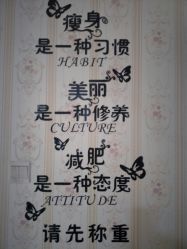 瘦身
是一种习惯
HABIT
美丽
是一种修养
CULTURE
减肥
是一种态度
ATTITUDE
请先称重